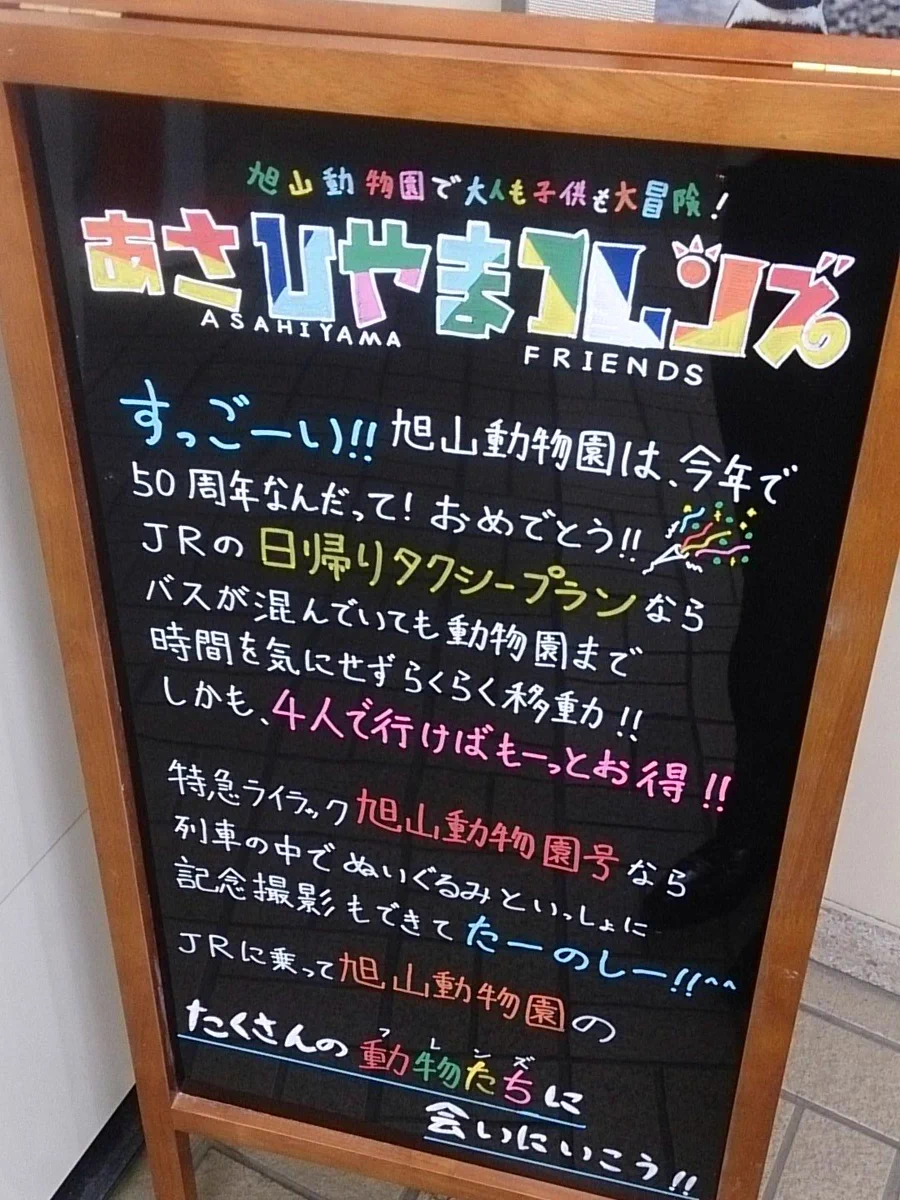 旭山動物園で大人も子供も大冒険!
あさひやまフレンズ
ASAHIYAMA
FRIENDS
すっごーい!!旭山動物園は、今年で
50周年なんだって!おめでとう!!
JRの日帰りタクシープランなら
バスが混んでいても動物園まで
時間を気にせずらくらく移動!!
しかも、4人で行けばもーっとお得!!
特急ライラック旭山動物園号なら
列車の中でぬいぐるみといっしょに
記念撮影もできてたーのしー!!^^
JRに乗って旭山動物園の
フレンズ
たくさんの動物たちに
会いにいこう!!